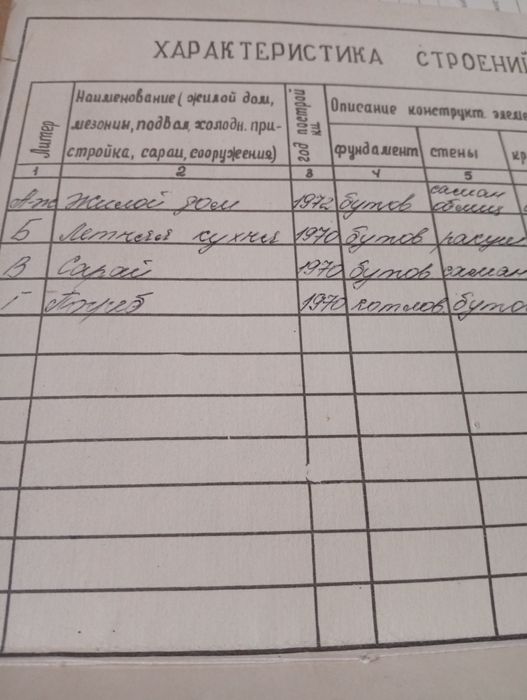 ХАРАКТЕРИСТИКА СТРОЕНИЙ
Литер
Наименование (жилой дом,
мезонин, подвал, холодн. при-
стройка, сараи, сооружения)
год построй
ки
Описание конструкт. элеме
фундамент
стены
кр
1 2 3 4 5
Жилой дом 1972 бутов саман
облиц
Б Летняя кухня 1970 бутов ракуш
В Сарай 1970 бутов саман
Г Погреб 1970 котлов буто